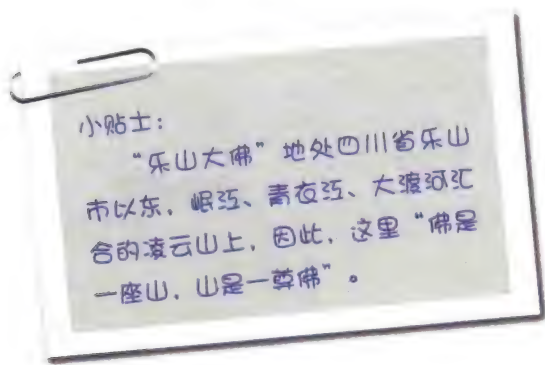 小贴士：
“乐山大佛”地处四川省乐山
市以东，岷江、青衣江、大渡河汇
合的凌云山上，因此，这里“佛是
一座山，山是一尊佛”。